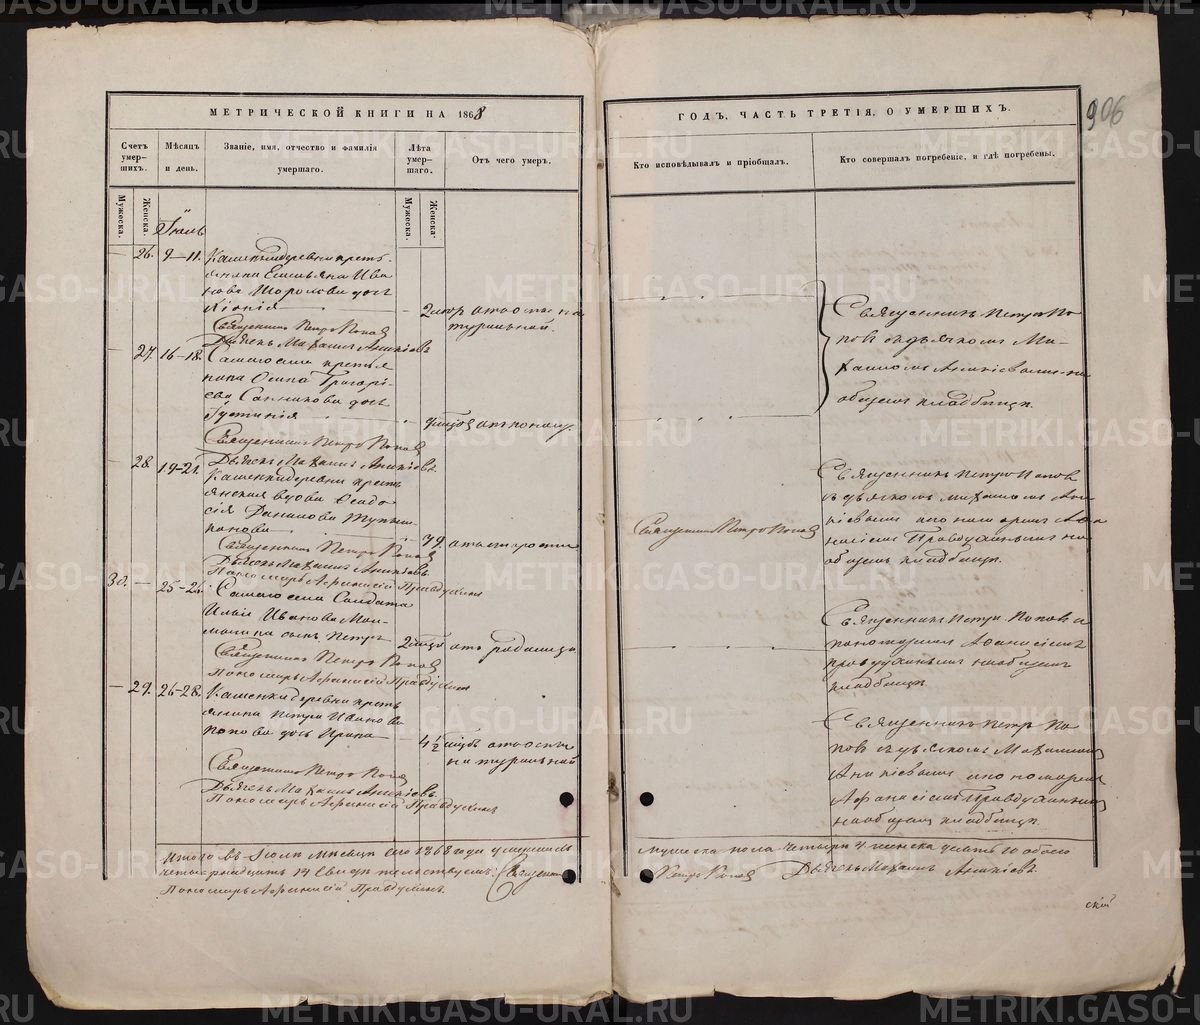 МЕТРИЧЕСКОЙ КНИГИ НА 1868
ГОДЪ, ЧАСТЬ ТРЕТІЯ, О УМЕРШИХЪ.
906
Счетъ умер-шихъ.
Мужеска.
Женска.
Мѣсяцъ и день.
Званіе, имя, отчество и фамилія умершаго.
Лѣта умер-шаго.
Мужеска.
Женска.
Отъ чего умеръ.
Кто исповѣдывалъ и пріобщалъ.
Кто совершалъ погребеніе, и гдѣ погребены.
Іюль
26. 9-11. деревни кресть
янина Емельяна Ива
нова дочь
Священникъ Петръ Поповъ
Дьячекъ Михаилъ Аникіевъ
2 отъ оспы на
туральной.
Священникъ Петръ По
повъ съ дьячкомъ Ми-
хаиломъ Аникіевымъ на
общемъ кладбищѣ.
27. 16-18. Самаго села кресть
янина Осипа Григорі-
ева Санникова дочь
Іустинія
Священникъ Петръ Поповъ
Дьячекъ Михаилъ Аникіевъ
отъ поносу.
28. 19-21. деревни кресть
янская вдова Ѳеодо
сія Данилова
Священникъ Петръ Поповъ
Дьячекъ Михаилъ Аникіевъ
Пономарь Афанасій Правдухинъ
79. отъ старости
Священникъ Петръ Поповъ
Священникъ Петръ Поповъ
съ дьячкомъ Михаиломъ Ани
кіевымъ и пономаремъ Афа
насіемъ Правдухинымъ на
общемъ кладбищѣ.
30. 25-26. Самаго села Солдата
Ильи Иванова
сынъ Петръ
Священникъ Петръ Поповъ
Пономарь Афанасій Правдухинъ
отъ родимца.
Священникъ Петръ Поповъ съ
пономаремъ Афанасіемъ
Правдухинымъ на общемъ
кладбищѣ.
29. 26-28. деревни кресть
янина Петра Иванова
Попова дочь Ирина
Священникъ Петръ Поповъ
Дьячекъ Михаилъ Аникіевъ
Пономарь Афанасій Правдухинъ
4½ отъ оспы
натуральной
Священникъ Петръ По
повъ съ дьячкомъ Михаиломъ
Аникіевымъ и пономаремъ
Афанасіемъ Правдухинымъ
на общемъ кладбищѣ.
Итого въ Іюлѣ мѣсяцѣ сего 1868 года умершихъ
мужеска пола четыре 4 женска десять 10 обоего
четырнадцать 14 Свидѣтельствуемъ: Священникъ
Петръ Поповъ Дьячекъ Михаилъ Аникіевъ
Пономарь Афанасій Правдухинъ
скій
METRIKI.GASO-URAL.RU